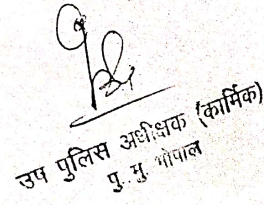 उप पुलिस अधीक्षक (कार्मिक)
पु. मु. भोपाल